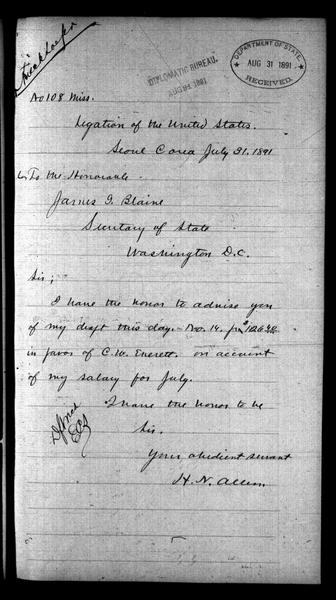 Bookkeeper
DIPLOMATIC BUREAU.
1891
DEPARTMENT OF STATE,
AUG 31 1891
RECEIVED.
No 108 Misc.
Legation of the United States.
Seoul Corea July 31. 1891
To the Honorable
James G. Blaine
Secretary of State
Washington D.C.
Sir;
I have the honor to advise you
of my draft this day - No. 14. for
in favor of C. W. Everett. on account
of my salary for July.
I have the honor to be
Sir.
Your obedient servant
H. N. Allen.